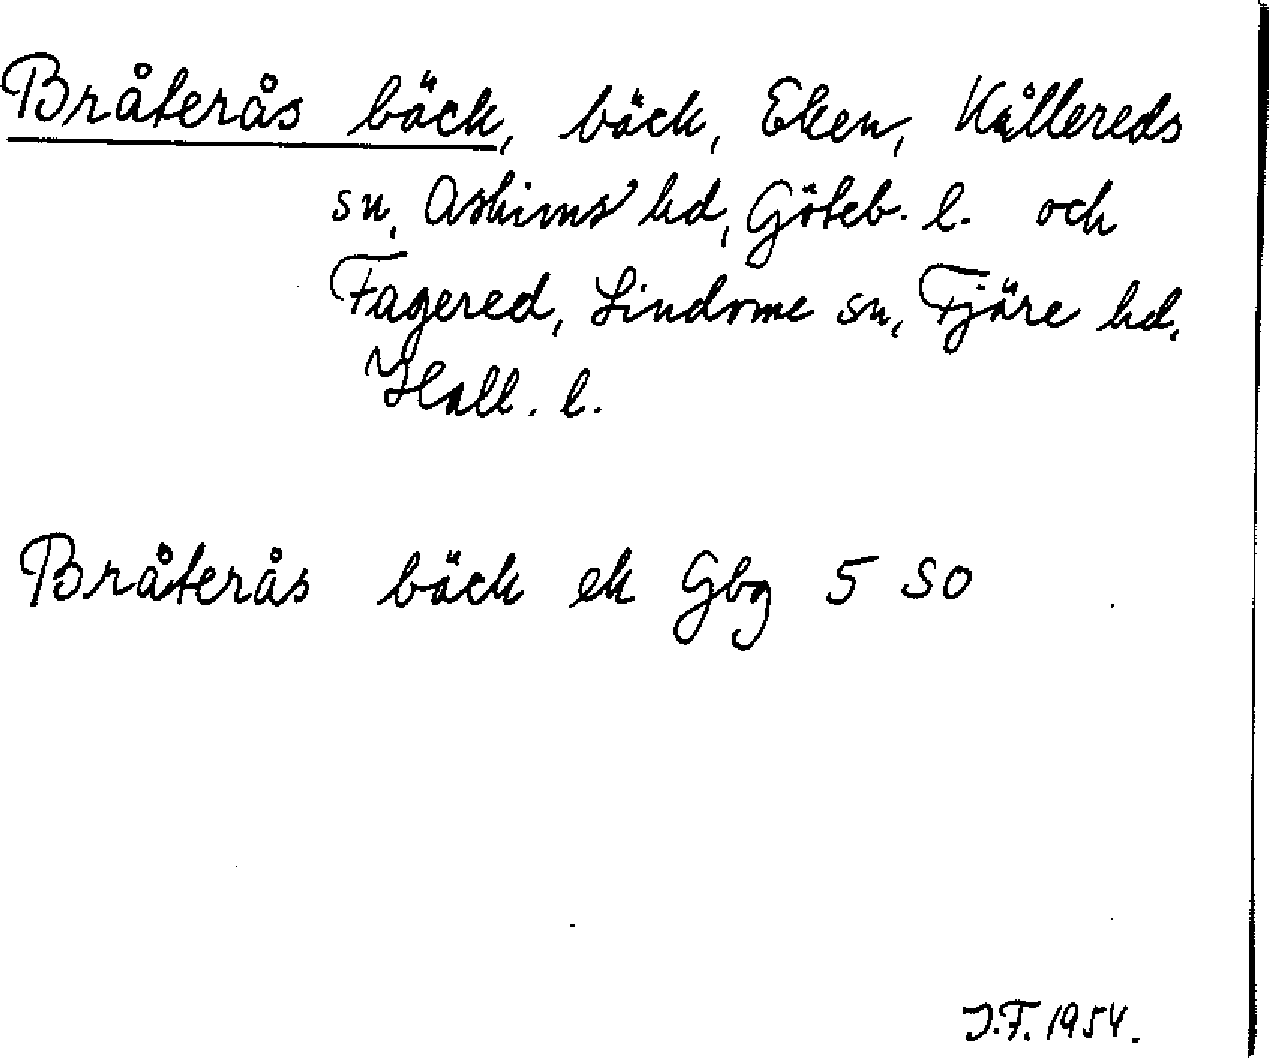 Bråterås bäck, bäck, Eken, Kållereds
sn, Askims hd, Göteb. l. och
Fagered, Lindome sn, Fjäre hd,
Hall. l.
Bråterås bäck ek Gbg 5 SO
J.F. 1954.